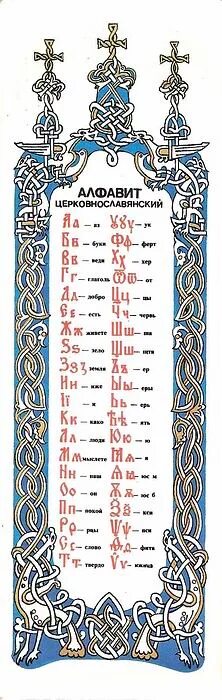 АЛФАВИТ
ЦЕРКОВНОСЛАВЯНСКИЙ
Аа – аз Ꙋѹ – ук
Бв – буки Фф – ферт
Вв – веди Хх – хер
Гг – глаголь Ѿѿ – от
Дд – добро Цц – цы
Єє – есть Чч – червь
Жж живете Шш – ша
Ѕѕ – зело Щщ – шта
Зз земля Ъъ – ер
Ии – иже Ыы – еры
Її – и Ьь – ерь
Кк – како Ѣѣ – ять
Лл – люди Юю – ю
Мм мыслете Ꙗꙗ – я
Нн – наш Ѧѧ – юс м
Оо – он Ѫѫ – юс б
Пп – покой Ѯѯ – кси
Рр – рцы Ѱѱ – пси
Сс – слово Ѳѳ – фита
Тт – твердо Ѵѵ – ижица